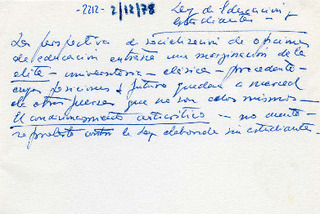 -2212- 2/12/78 Ley de Educación y
estudiantes -
Las perspectivas de socialización de opciones
de educación entraña una marginación de la
élite - universitaria - clásica - procedente -
cuyas posiciones de futuro quedan a merced
de otras fuerzas que no son ellos mismos -
El condicionamiento anticrítico - no cuenta -
protesta contra la Ley elaborada sin estudiantes -